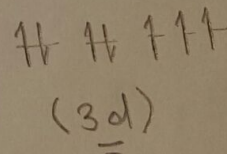 ⥮ ⥮ ↿ ↿ ↿
(3d)